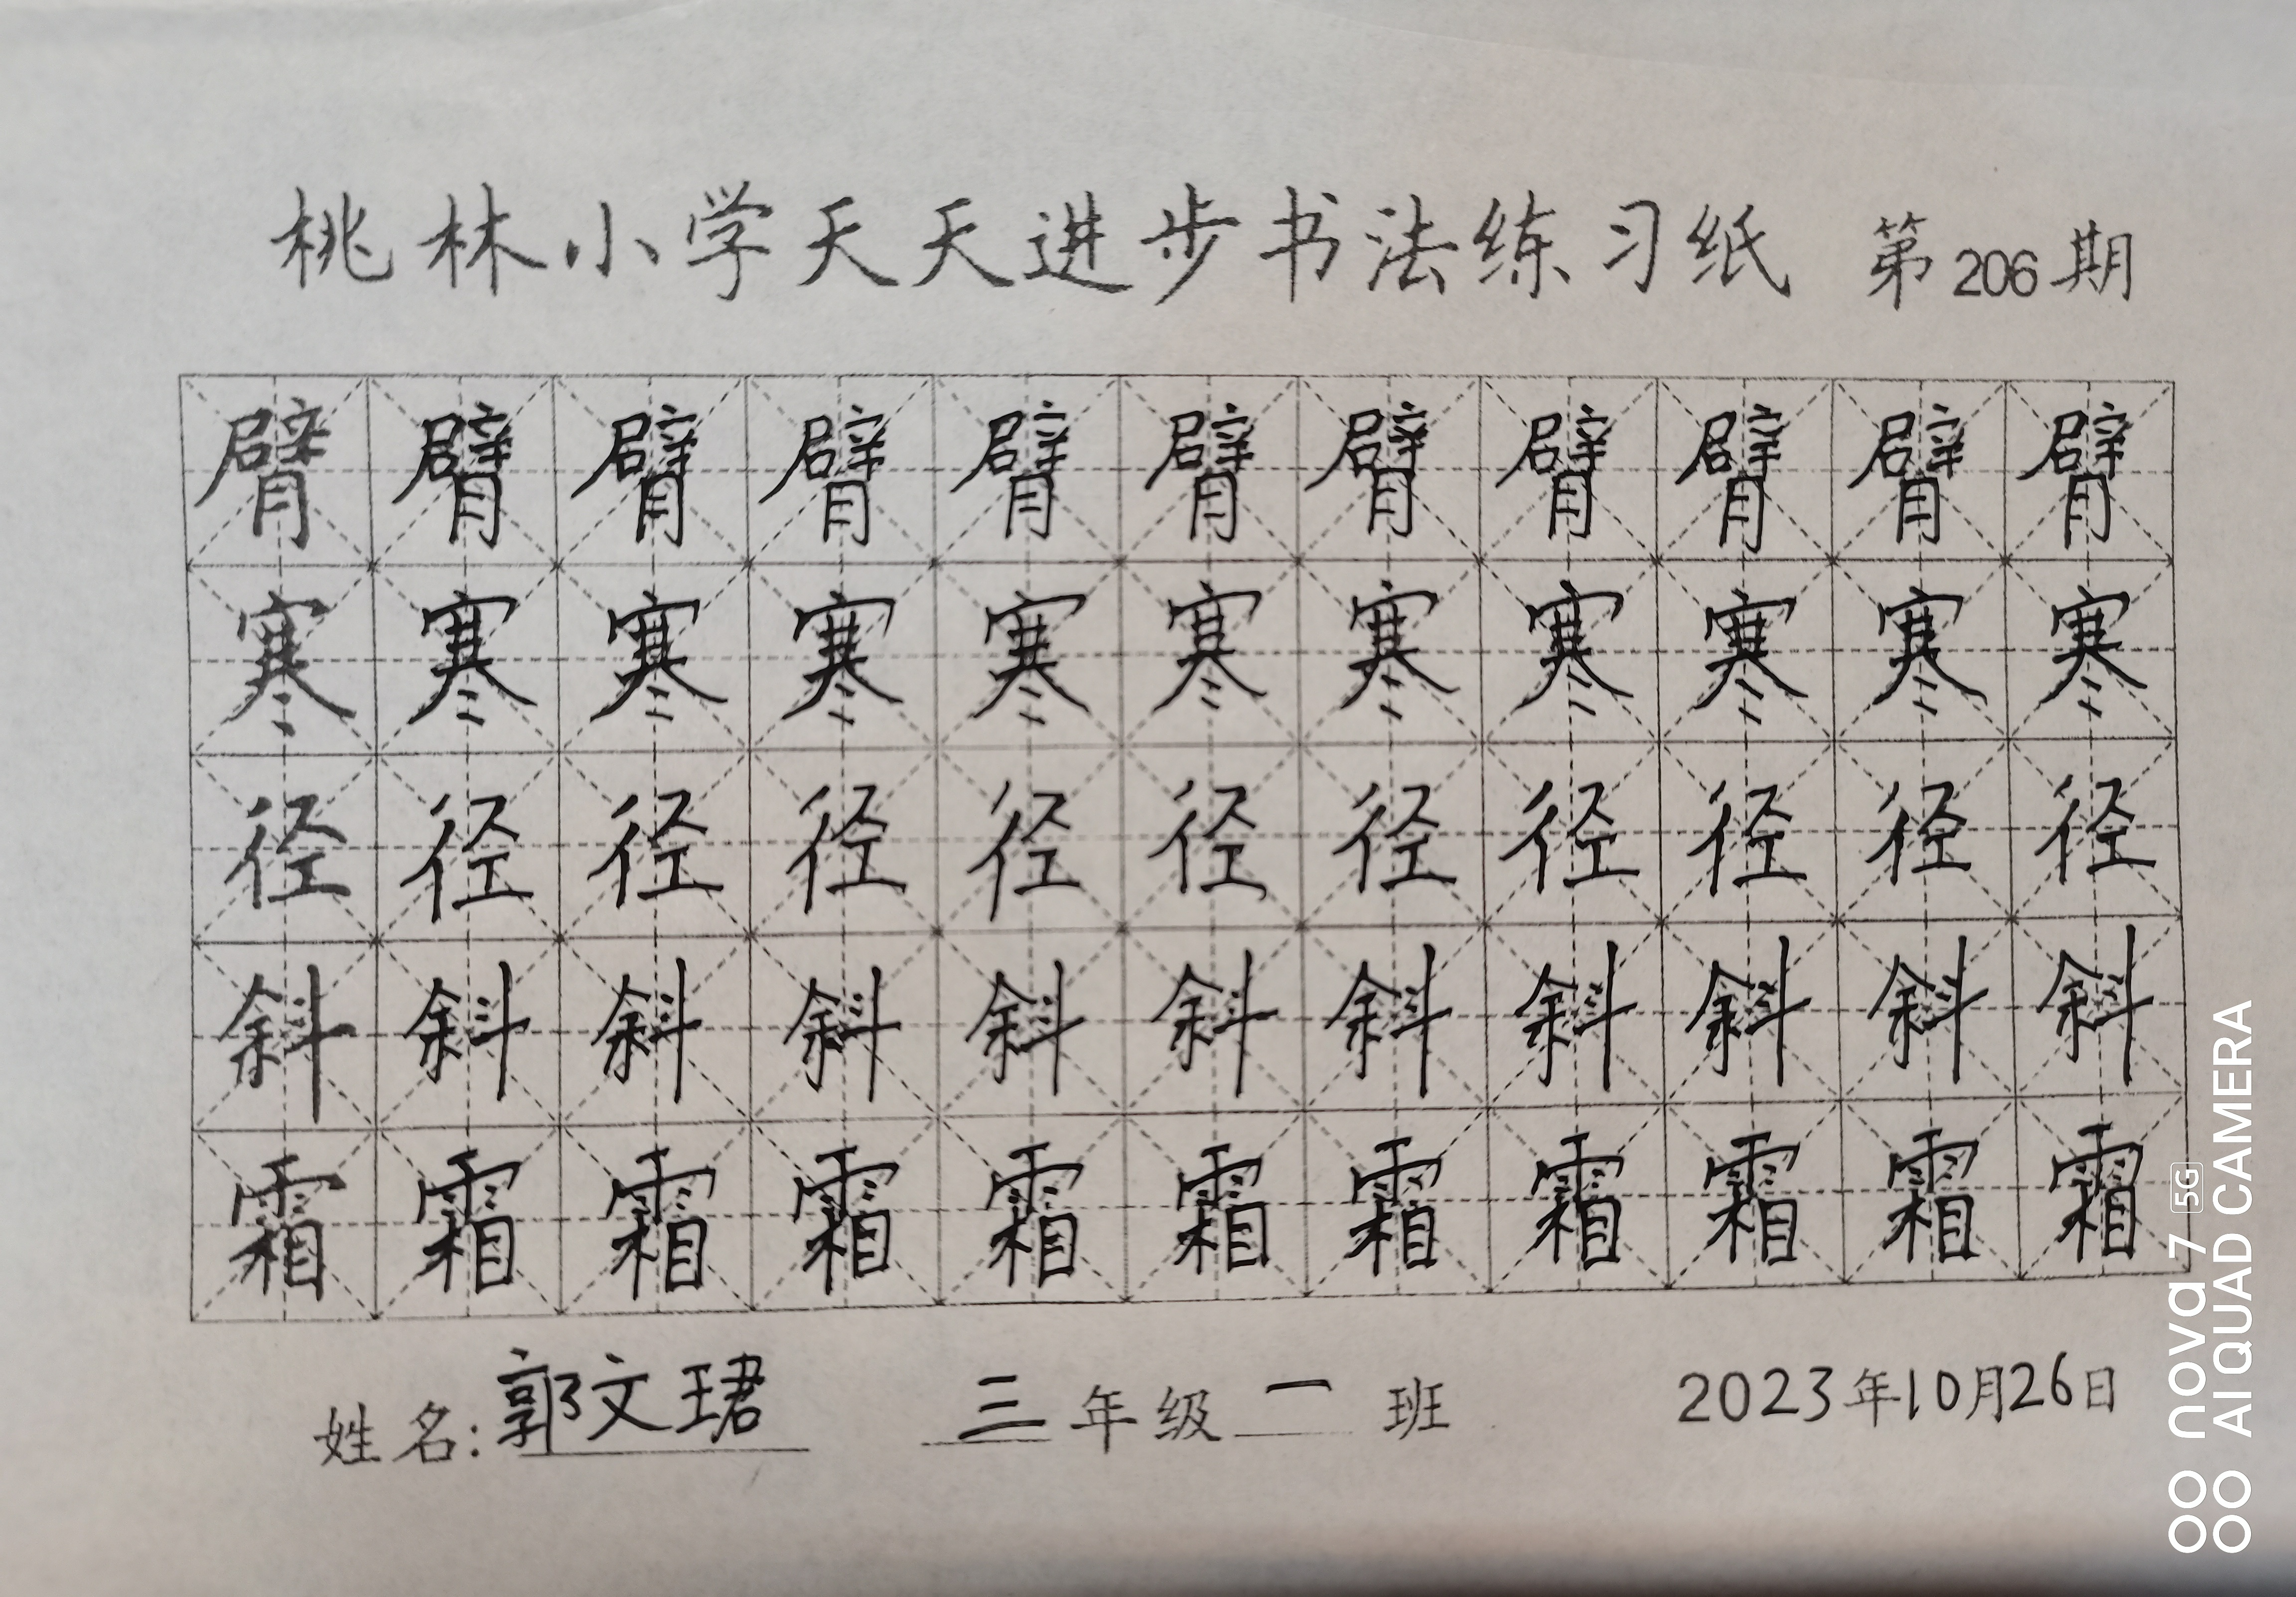 桃林小学天天进步书法练习纸 第206期
臂臂臂臂臂臂臂臂臂臂臂
寒寒寒寒寒寒寒寒寒寒寒
径径径径径径径径径径径
斜斜斜斜斜斜斜斜斜斜斜
霜霜霜霜霜霜霜霜霜霜霜
姓名:郭文珺 三年级一班 2023年10月26日
nova 7 5G
AI QUAD CAMERA